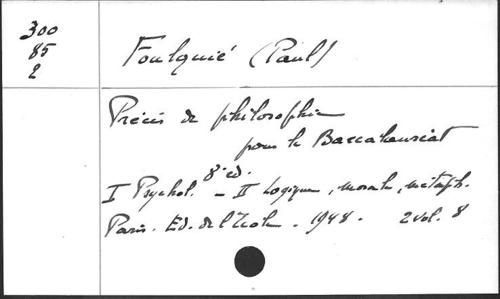 300
85
2
Foulquié (Paul)
Précis de philosophie
pour le Baccalauréat
8e éd.
I Psychol. – II Logique, morale, métaph.
Paris. Ed. de l'Ecole. 1948. 2 vol. 8